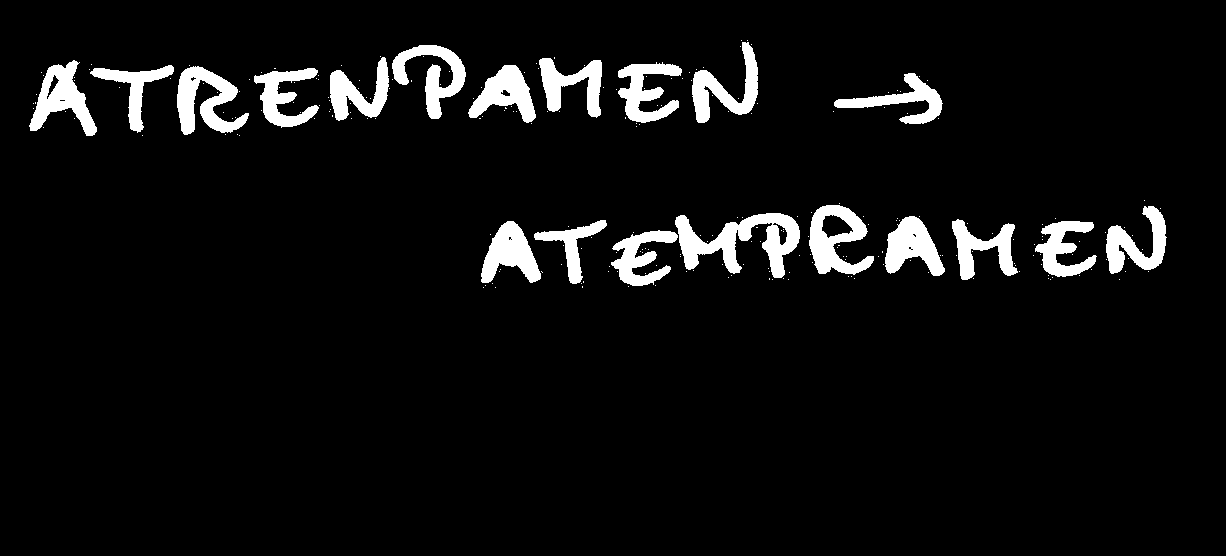 ATRENPAMEN →
ATEMPRAMEN